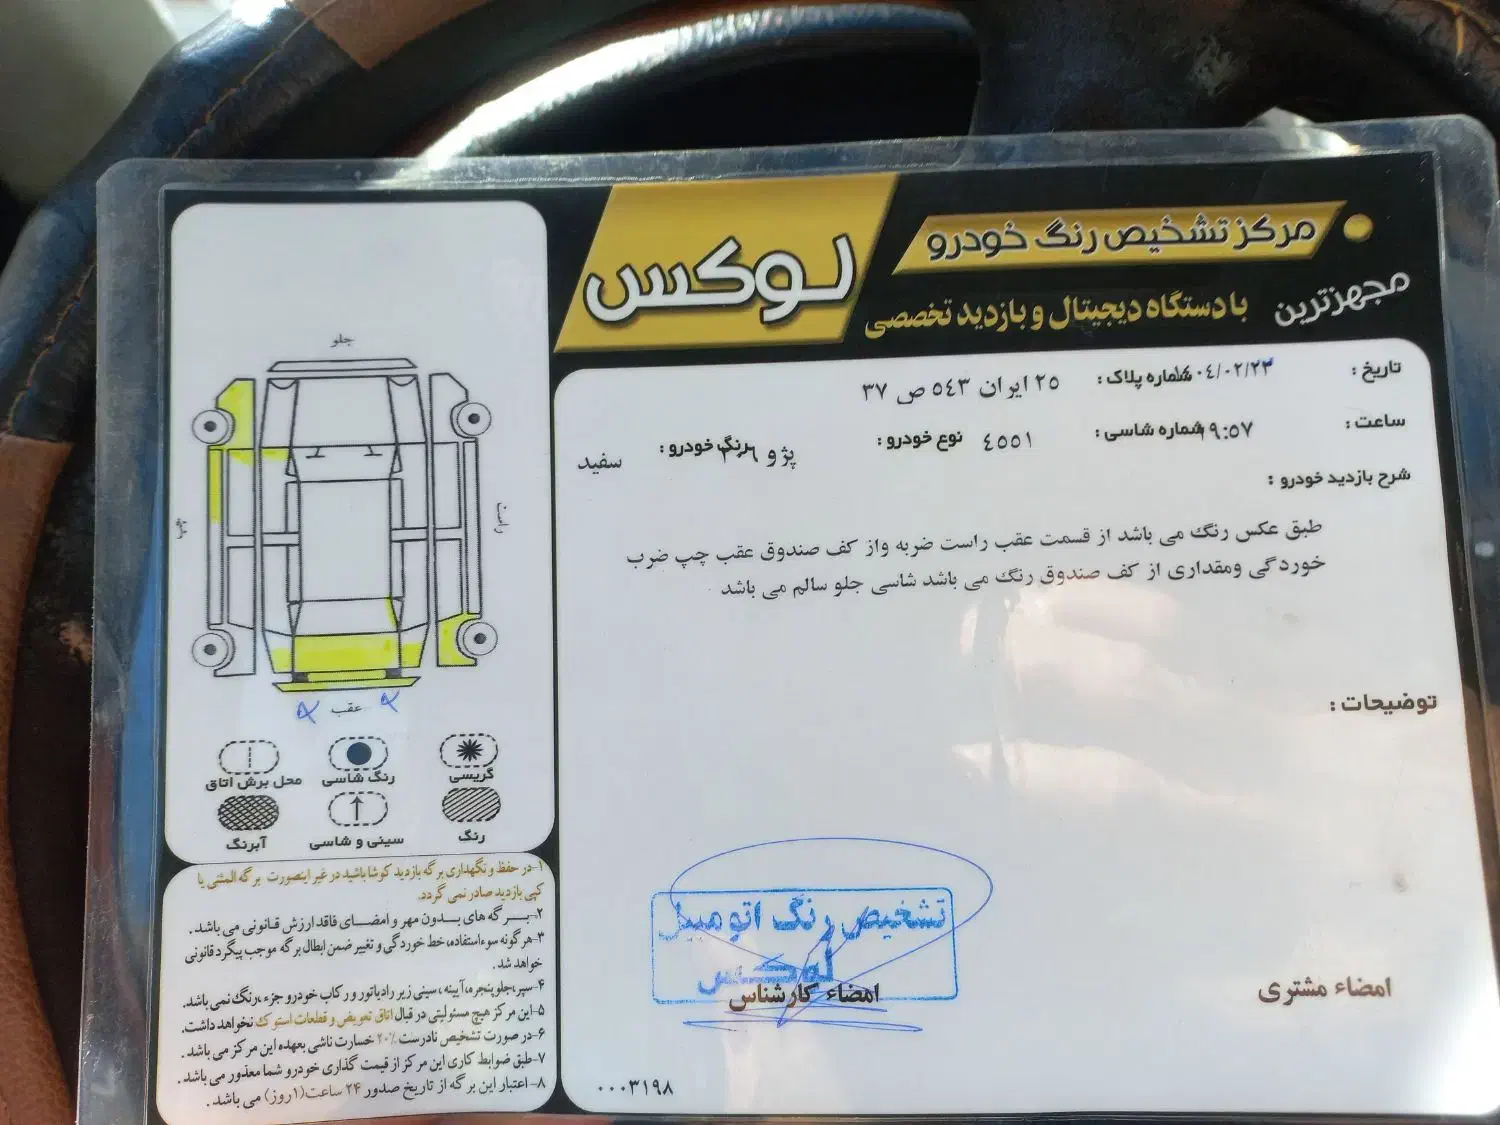 مرکز تشخیص رنگ خودرو
لوکس
مجهزترین
با دستگاه دیجیتال و بازدید تخصصی
تاریخ : ۱۴۰۴/۰۲/۲۳ شماره پلاک : ۲۵ ایران ۵۴۳ ص ۳۷
ساعت : ۱۹:۵۷ شماره شاسی : ٤٥٥١ نوع خودرو : پژو ۲۰۶ رنگ خودرو : سفید
شرح بازدید خودرو :
طبق عکس رنگ می باشد از قسمت عقب راست ضربه واز کف صندوق عقب چپ ضرب
خوردگی ومقداری از کف صندوق رنگ می باشد شاسی جلو سالم می باشد
توضیحات :
امضاء مشتری
تشخیص رنگ اتومبیل
لوکس
امضاء کارشناس
۰۰۰۳۱۹۸
جلو
راست
عقب
گریسی
رنگ شاسی
محل برش اتاق
رنگ
سینی و شاسی
آبرنگ
۱-در حفظ و نگهداری برگه بازدید کوشا باشید در غیر اینصورت برگه المثنی یا
کپی بازدید صادر نمی گردد.
۲-بـرگه های بـدون مهر و امضـای فاقد ارزش قـانونی می باشد .
۳-هرگونه سوءاستفاده، خط خوردگی و تغییر ضمن ابطال برگه موجب پیگرد قانونی
خواهد شد .
۴-سپر،جلوپنجره،آیینه،سینی زیر رادیاتور و رکاب خودرو جزء ،رنگ نمی باشد.
۵-این مرکز هیچ مسئولیتی در قبال اتاق تعویض و قطعات استوک نخواهد داشت.
۶-در صورت تشخیص نادرست ۲۰٪ خسارت ناشی بعهده این مرکز می باشد .
۷-طبق ضوابط کاری این مرکز از قیمت گذاری خودرو شما معذور می باشد .
۸-اعتبار این برگه از تاریخ صدور ۲۴ ساعت(۱روز) می باشد .